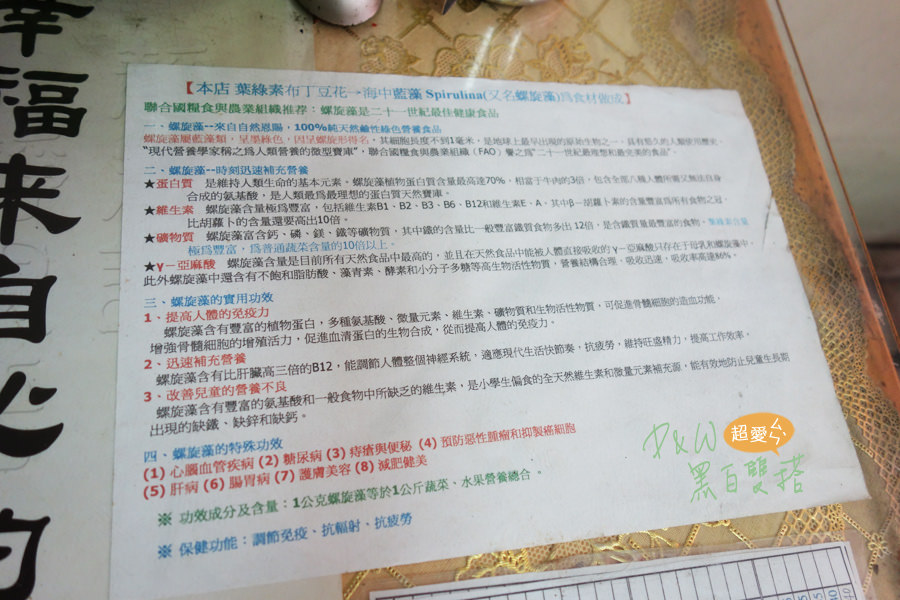 幸福來自心的
【本店 葉綠素布丁豆花→海中藍藻 Spirulina(又名螺旋藻)為食材做成】
聯合國糧食與農業組織推荐：螺旋藻是二十一世紀最佳健康食品
一、螺旋藻--來自自然恩賜，100%純天然鹼性綠色營養食品
螺旋藻屬藍藻類，呈墨綠色，因呈螺旋形得名，其細胞長度不到1毫米，是地球上最早出現的原始生物之一，具有悠久的人類食用歷史，
"現代營養學家稱之為人類營養的微型寶庫"，聯合國糧食與農業組織（FAO）譽之為"二十一世紀最理想和最完美的食品"。
二、螺旋藻--時刻迅速補充營養
★蛋白質 是維持人類生命的基本元素。螺旋藻植物蛋白質含量最高達70%，相當于牛肉的3倍，包含全部八種人體所需又無法自身
合成的氨基酸，是人類最爲最理想的蛋白質天然寶庫。
★維生素 螺旋藻含量極爲豐富，包括維生素B1、B2、B3、B6、B12和維生素E、A。其中β一胡蘿卜素的含量豐富爲所有食物之冠，
比胡蘿卜的含量還要高出10倍。
★礦物質 螺旋藻富含鈣、磷、鎂、鐵等礦物質，其中鐵的含量比一般豐富鐵質食物多出 12倍，是含鐵質量最豐富的食物。葉綠素含量
極爲豐富，爲普通蔬菜含量的10倍以上。
★γ－亞麻酸 螺旋藻含量是目前所有天然食品中最高的，並且在天然食品中能被人體直接吸收的γ－亞麻酸只存在于母乳和螺旋藻中。
此外螺旋藻中還含有不飽和脂肪酸、藻青素、酵素和小分子多糖等高生物活性物質，營養結構合理，吸收迅速，吸收率高達86%。
三、螺旋藻的實用功效
1、提高人體的免疫力
螺旋藻含有豐富的植物蛋白，多種氨基酸、微量元素、維生素、礦物質和生物活性物質，可促進骨髓細胞的造血功能，
增強骨髓細胞的增殖活力，促進血清蛋白的生物合成，從而提高人體的免疫力。
2、迅速補充營養
螺旋藻含有比肝臟高三倍的B12，能調節人體整個神經系統，適應現代生活快節奏，抗疲勞，維持旺盛精力，提高工作效率，
3、改善兒童的營養不良
螺旋藻含有豐富的氨基酸和一般食物中所缺乏的維生素，是小學生偏食的全天然維生素和微量元素補充源，能有效地防止兒童生長期
出現的缺鐵、缺鋅和缺鈣。
四、螺旋藻的特殊功效
(1) 心腦血管疾病 (2) 糖尿病 (3) 痔瘡與便秘 (4) 預防惡性腫瘤和抑製癌細胞
(5) 肝病 (6) 腸胃病 (7) 護膚美容 (8) 減肥健美
※ 功效成分及含量：1公克螺旋藻等於1公斤蔬菜、水果營養總合 。
※ 保健功能：調節免疫、抗輻射、抗疲勞
P&W
超愛ㄙ
黑白雙搭